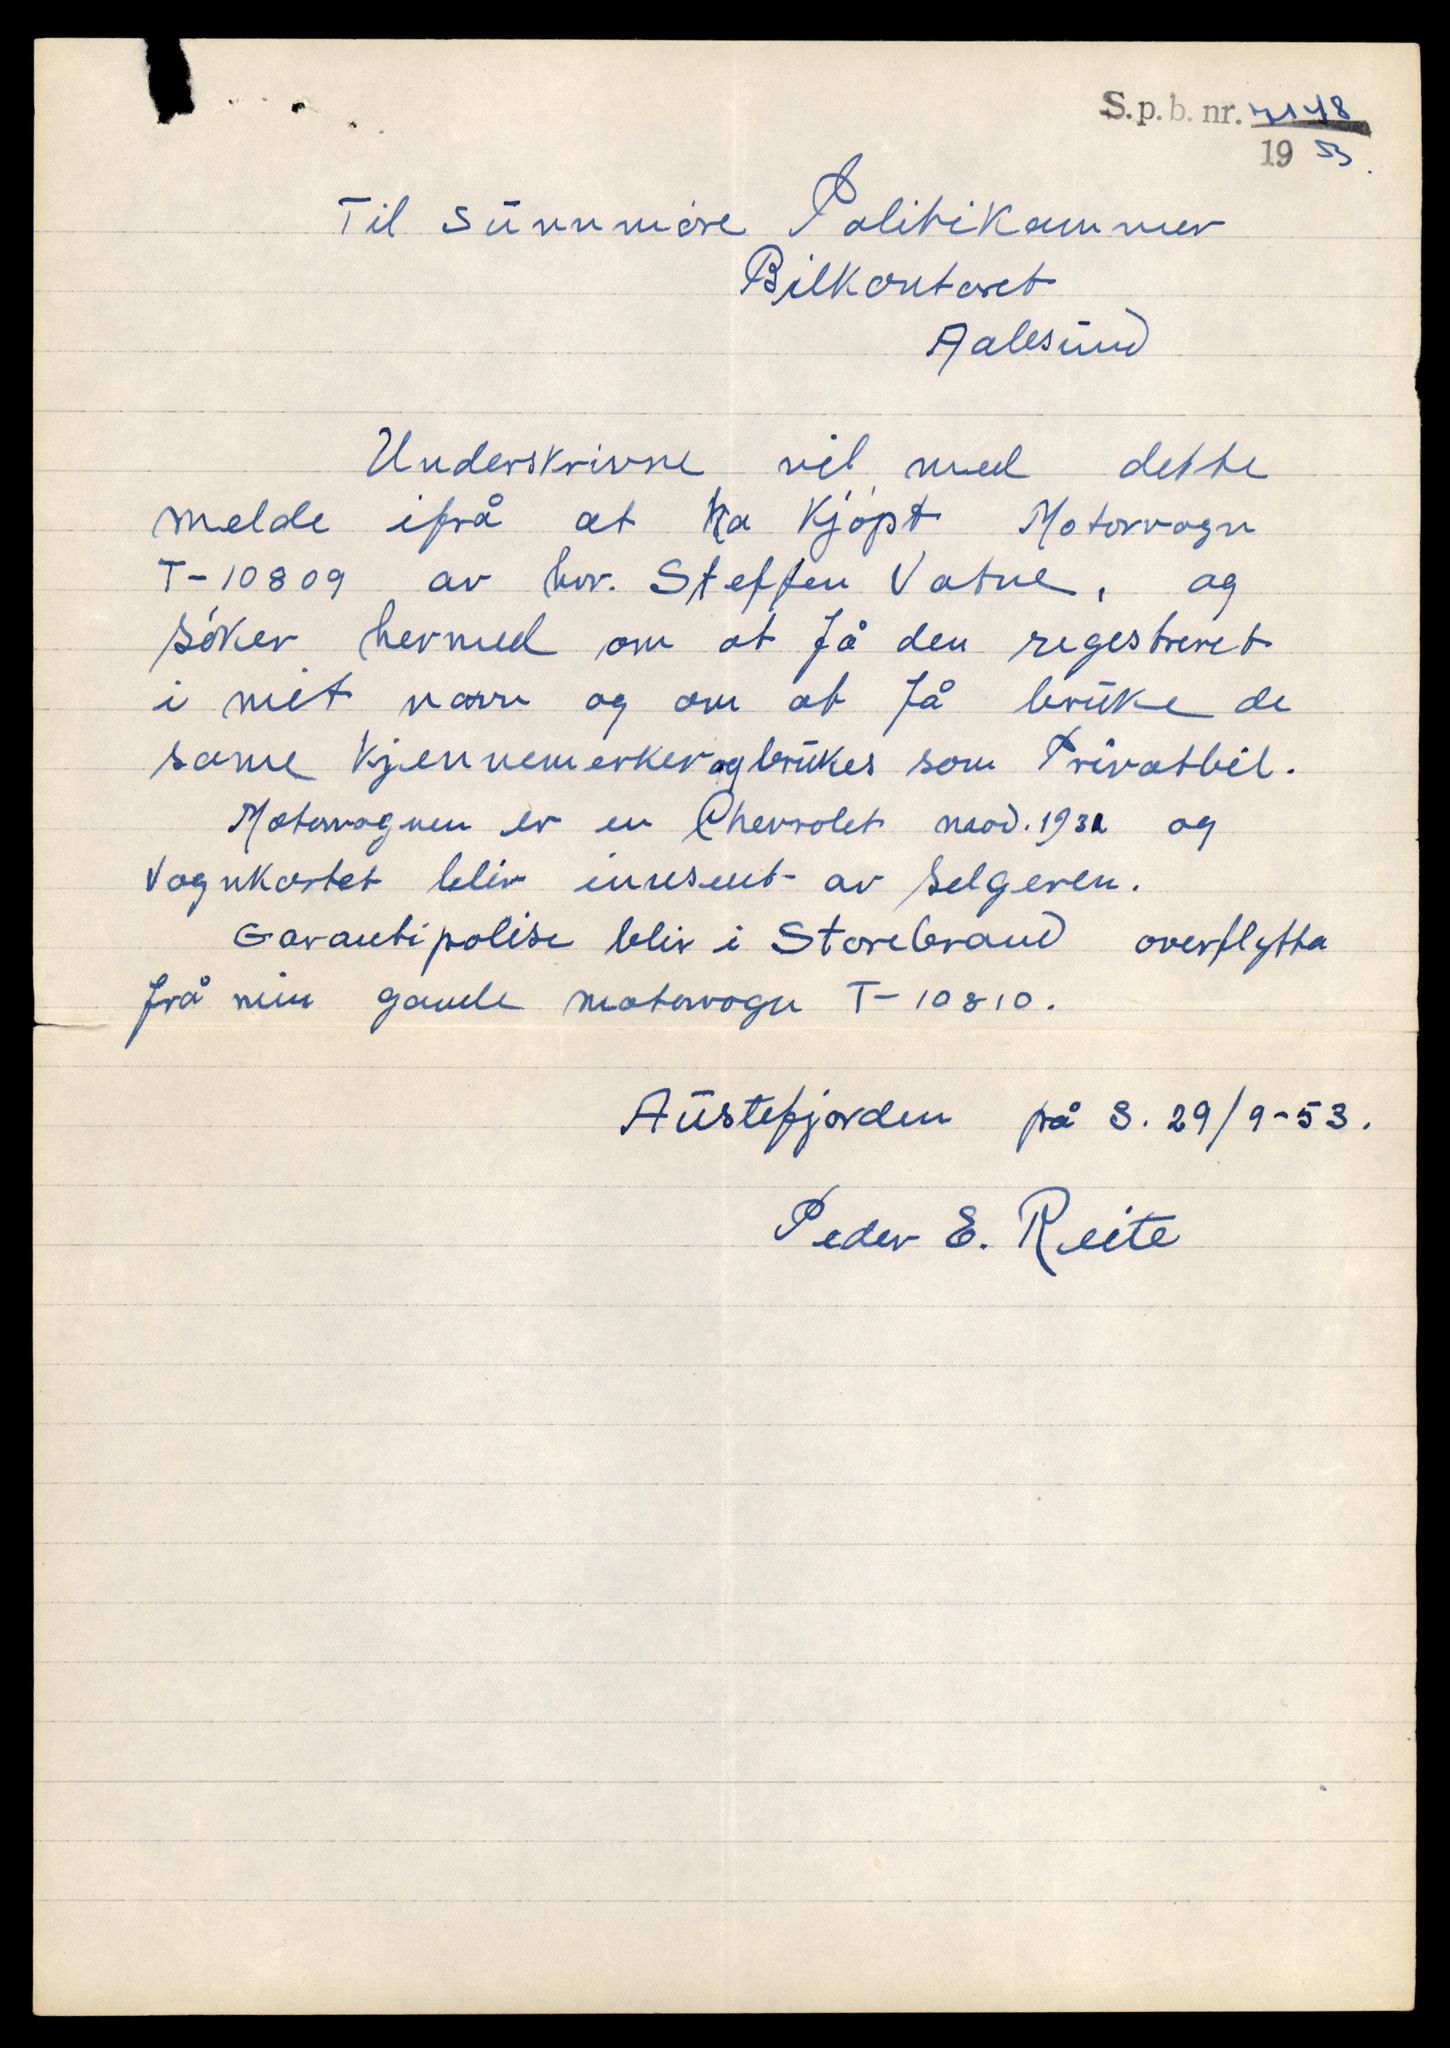 S.p.b. nr. 7148
19 53.
Til Sunnmøre Politikammer
Bilkontoret
Aalesund
Underskrivne vil med dette
melde ifrå at ha kjøpt Motorvogn
T-10809 av hr. Steffen Vatne, og
søker hermed om at få den regestreret
i mit navn og om at få bruke de
same kjennemerker og brukes som Privatbil.
Motorvognen er en Chevrolet mod. 1931 og
Vognkortet bliv innsent av selgeren.
Garantipolise bliv i Storebrand overflytta
frå min gamle motorvogn T-10810.
Austefjorden på S. 29/9-53.
Peder E. Reite